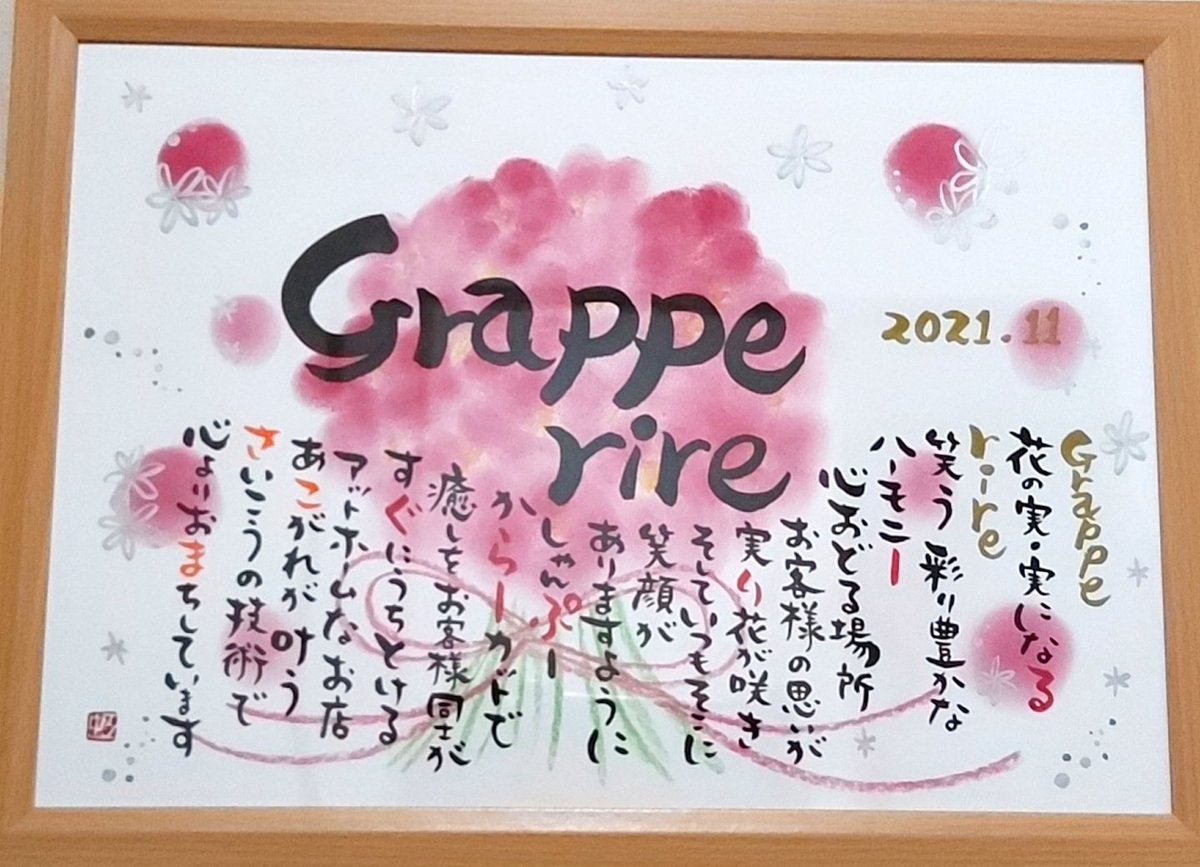 Grappe
rire
2021.11
Grappe
花の実・実になる
rire
笑う 彩り豊かな
ハーモニー
心おどる場所
お客様の思いが
実り花が咲き
そしていつもそこに
笑顔が
ありますように
しゃんぷー
からーカットで
癒しをお客様同士が
すぐにうちとける
アットホームなお店
あこがれが叶う
さいこうの技術で
心よりおまちしています